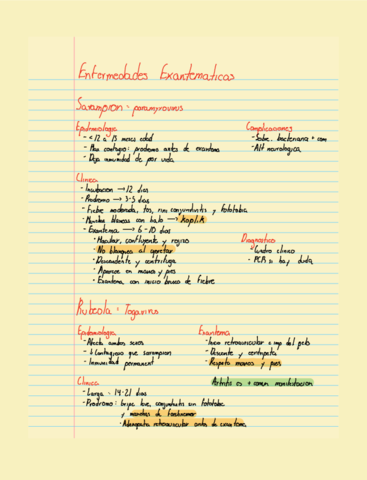 Enfermedades Exantematicas
Sarampion - paramyxovirus
Epidemiologia
- <12 a 15 meses edad
- Max contagio: prodromo antes de exantema
- Deja inmunidad de por vida
Complicaciones
- Sobr. bacteriana + com
- Alt neurologica
Clinica
- Incubacion → 12 dias
- Prodromo → 3-5 dias
- Fiebre moderada, tos, rim conjuntivitis y fotofobia
- Manchas blancas con halo → Koplik
- Exantema → 6-10 dias
- Macular, confluyente y rojizo
- No blanquea al apretar
- Descendente y centrifuga
- Aparece en manos y pies
- Exantema con inicio brusco de fiebre
Diagnostico
- Cuadro clinico
- PCR si hay duda
Rubeola - Togavirus
Epidemiologia
- Afecta ambos sexos
- ↓ contagioso que sarampion
- Inmunidad permanent
Exantema
- Inicio retroauricular o imp del pelo
- Descente y centripeta
- Respeta manos y pies
Artritis es + comun manifestacion
Clinica
- Larga - 14-21 dias
- Prodromo: leve, conjuntivitis sin fotofobia
y manchas de Forchheimer
- Adenopatia retroauricular antes de exantema